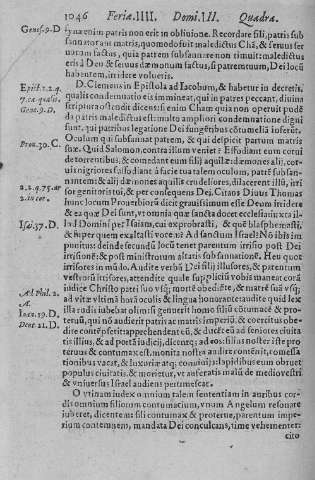 1046 Feria.IIII. Domi.III. Quadra.
Genes.9.D
synæ enim patris non erit in obliuione. Recordare fili, patris sub
sannatorem matris, quomodo fuit maledictus Chā, & seruus ser
uorum factus, quia patrem subsannare non timuit: maledictus
eris à Deo & seruus dæmonum factus, si patrem tuum, Dei locū
habentem, in risere volueris.
D. Clemens in Epistola ad Iacobum, & habetur in decretis,
qualis condemnatio eis immineat, qui in patres peccant, diuina
scriptura ostendit dicens: si enim Cham quia non operuit pudē
da patris maledictus est: multo ampliori condemnatione digni
sunt, qui patribus legatione Dei fungētibus cōtumeliā inferūt.
Pro.30.C.
Oculum qui subsannat patrem, & qui despicit partum matris
suæ. Quid Salomon, contra illum veniet? Effodiant eum corui
de torrentibus, & comedant eum filij aquilæ: dæmones alij, cor-
uis nigriores suffodiant à facie tua talem oculum, patrē subsan-
nantem: & alij dæmones aquilis crudeliores, dilacerent illū, irri
2.2.q.75.ar
sor genitoris tui, & per consequens Dei. Citans Diuus Thomas
2.in cor.
hunc locum Prouerbiorū dicit grauissimum esse Deum irridere
& ea quæ Dei sunt, vt omnia quæ sancta docet ecclesia: iuxta il-
Isai.37.D.
lud Domini per Isaiam, cui exprobrasti, & quē blasphemasti,
& super quem exaltasti vocē: Ad sanctum Israel: Nō ibis im
punitus: deinde secundū locū tenet parentum irrisio post Dei
irrisionē: & post ministrorum altatis subsannationē. Heu quot
irrisores in mūdo. Audite verbā Dei filij illusores, & parentum
vestrorū irrisores, attendite quale supplicitū vobis manent corā
Ad Phil.2.
iudice Christo patri suo vsq; mortē obediēte, & matrē suā vsq;
A.
ad vitæ vltimā horā oculis & lingua honorante: audite quid lex
Luce.19.D.
illa rudis iubebat olim: si genuerit homo filiū cōtumacē & pro-
Deut.21.D.
teruū, qui nō audierit patris aut matris imperiū, & coercitus obe-
dire contēpserit: apprehendent eū, & ducēt eū ad seniores ciuita
tis illius, & ad portā iudicij, dicentq; ad eos: filius noster iste pro
teruus & contumax est. monita nostra audire contēnit, comessa
tionibus vacat, & luxuriæ atq; conuiuijs: lapidibus eum obruet
populus ciuitatis, & morietur, vt auferatis malū de medio vestri
& vniuersus Israel audiens pertimescat.
O vtinam index omnium talem sententiam in auribus cor-
dis omnium filiorum contumatium, vnum Angelum resonare
iuberet, dicentem: fili contumax & proterue, parentum impe-
rium contemnens, mandata Dei conculcans, time vehementer:
cito